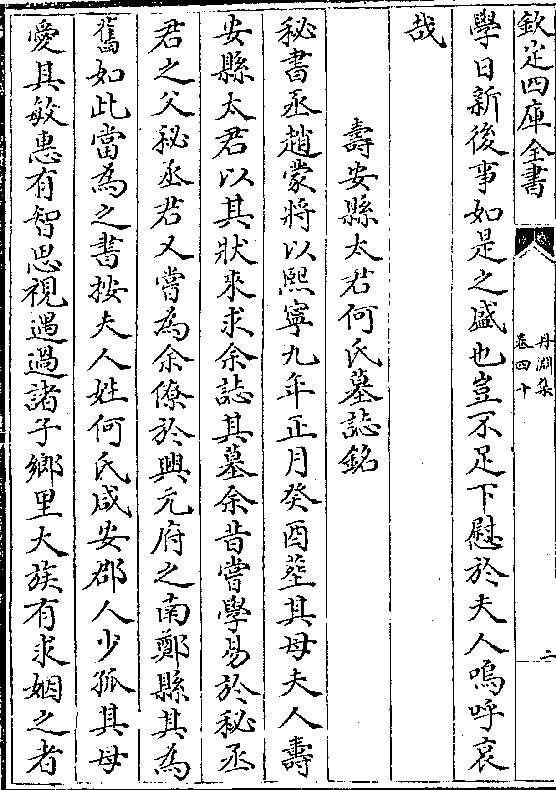 欽定四庫全書
丹淵集
卷四十
二
學日新後事如是之盛也豈不足下慰於夫人嗚呼哀
哉
壽安縣太君何氏墓誌銘
秘書丞趙蒙將以熙寧九年正月癸酉塟其母夫人壽
安縣太君以其狀來求余誌其墓余昔嘗學易於秘丞
君之父秘丞君又嘗為余僚於興元府之南鄭縣其為
舊如此當為之書按夫人姓何氏咸安郡人少孤其母
愛其敏惠有智思視遇過諸子鄉里大族有求姻之者